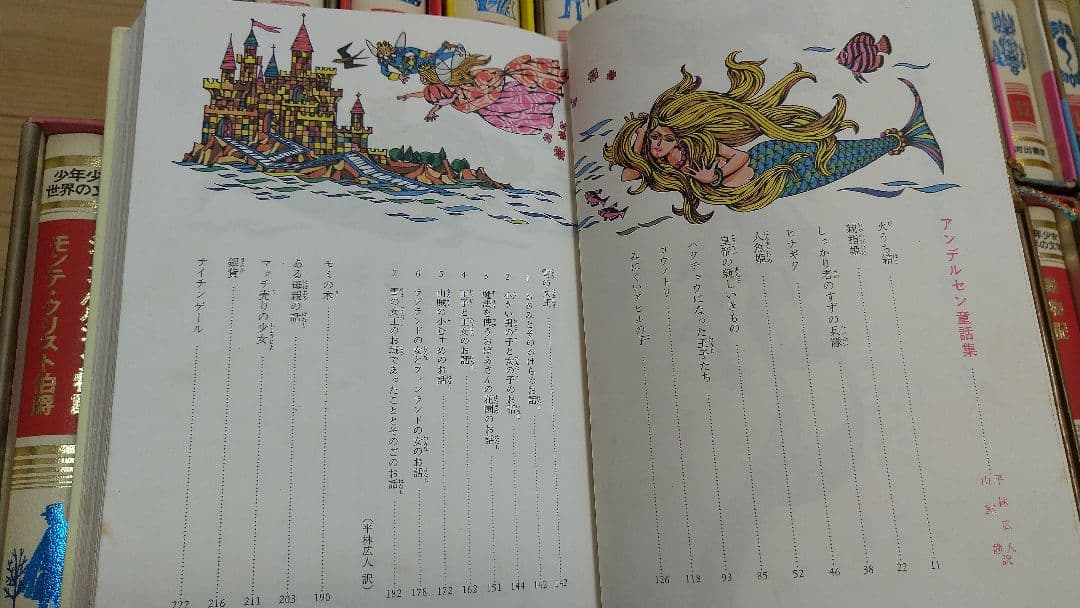 アンデルセン童話集
平林広人
山室静
訳
火うち箱 11
親指姫 22
しっかり者のすずの兵隊 38
ヒナギク 46
人魚姫 52
皇帝の新しいきもの 85
ハクチョウになった王子たち 93
コウノトリ 118
みにくいアヒルの子 126
雪の女王 142
1 かがみとそのかけらのお話 142
2 小さい男の子と女の子のお話 144
3 魔法を使うおばあさんの花園のお話 151
4 王子と王女のお話 162
5 山賊の小むすめのお話 172
6 ラプランドの女とフィンランドの女のお話 178
7 雪の女王のお城であったこととそのごのお話 182
(平林広人 訳)
モミの木 190
ある母親の話 203
マッチ売りの少女 211
銀貨 216
ナイチンゲール 222
少年少
世界の文
モンテ・クリスト伯爵
河出書房